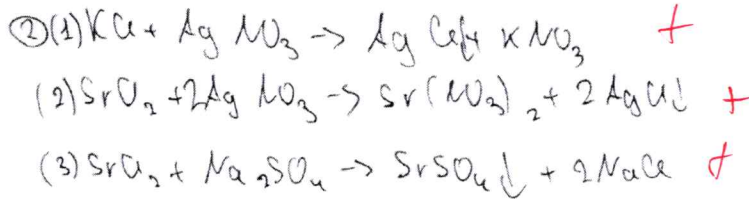 ②(1) KCl + AgNO₃ → AgCl↓ + KNO₃ +
(2) SrCl₂ + 2AgNO₃ → Sr(NO₃)₂ + 2AgCl↓ +
(3) SrCl₂ + Na₂SO₄ → SrSO₄↓ + 2NaCl +